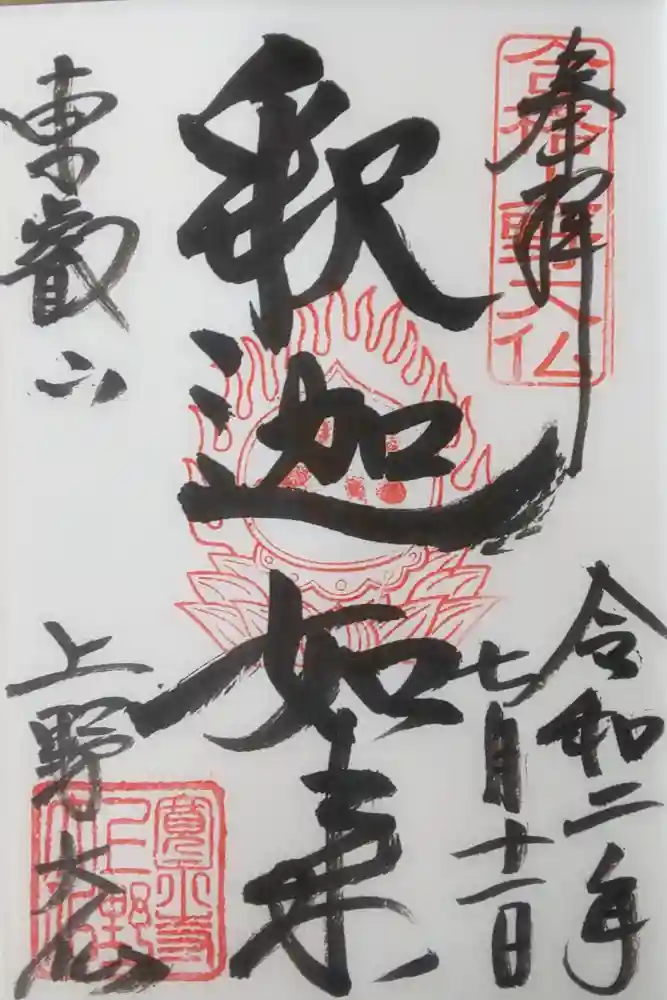 奉拝
合格上野大仏
令和二年
七月十一日
釈迦如来
東叡山
上野大仏
寛永寺
上野
大仏